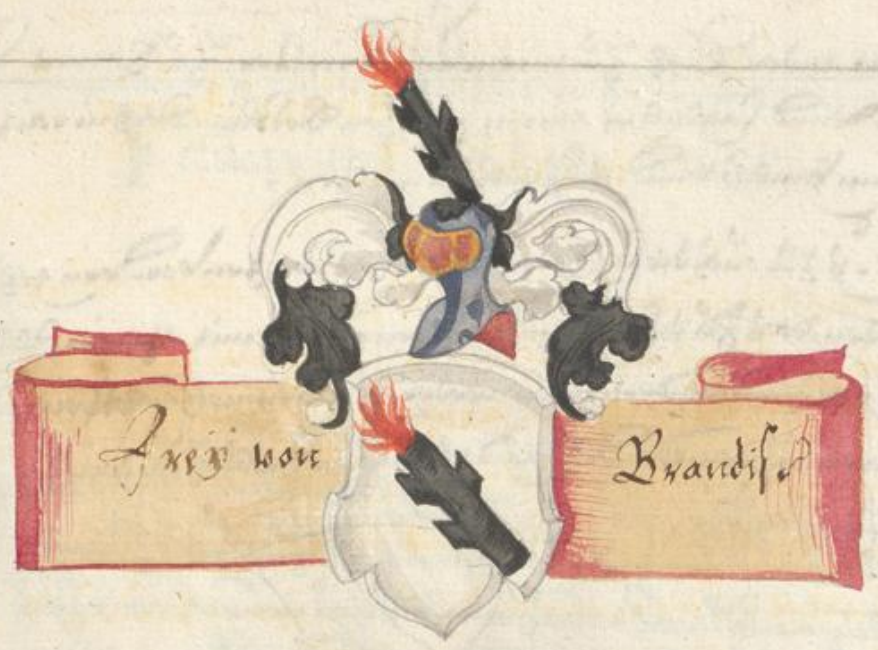 Freÿ von Brandiß